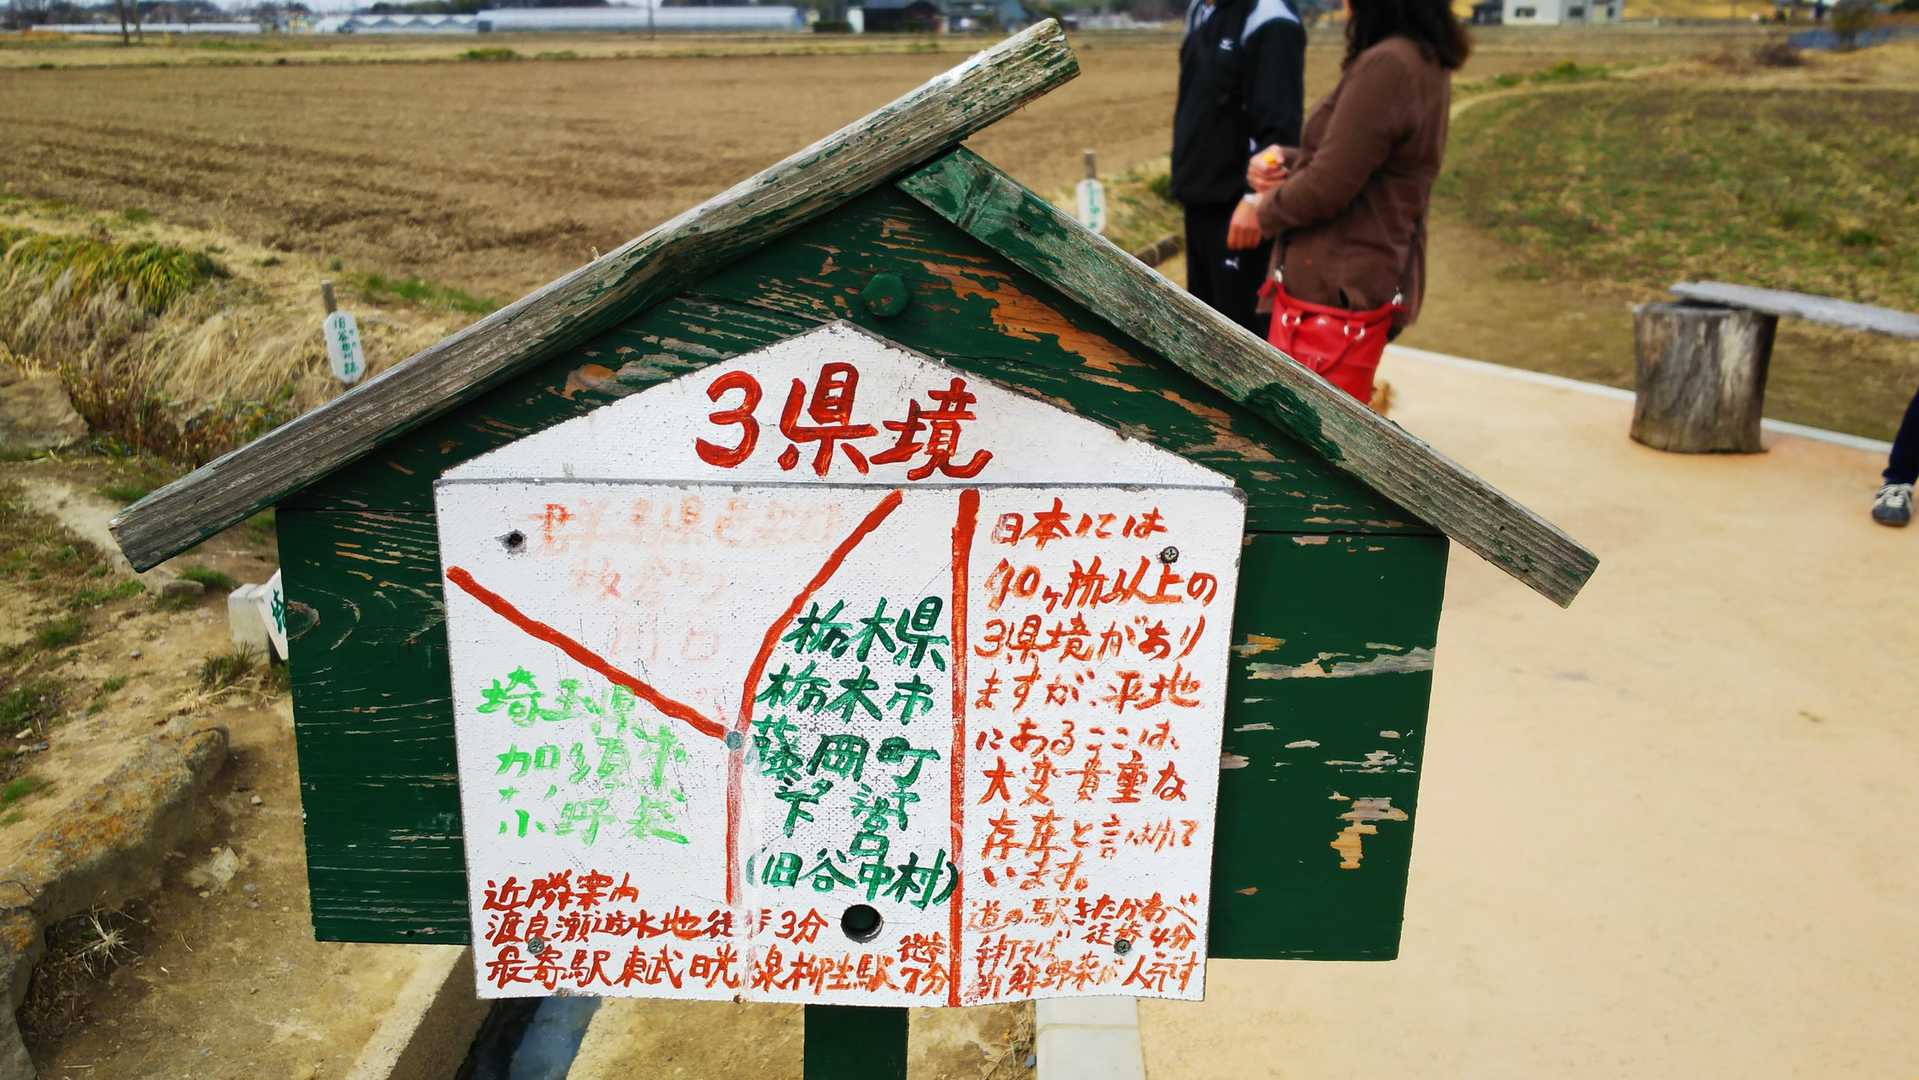 3県境
群馬県邑楽郡
板倉町
栃木県
栃木市
藤岡町
下宮
(旧谷中村)
埼玉県
加須市
小野袋
日本には
40ヶ所以上の
3県境があり
ますが、平地
にあるここは、
大変貴重な
存在と言われて
います。
近隣案内
渡良瀬遊水地徒歩3分
最寄駅東武日光線柳生駅徒歩7分
道の駅きたかわべ
徒歩4分
手打そば
新鮮野菜が人気です
旧谷田川跡